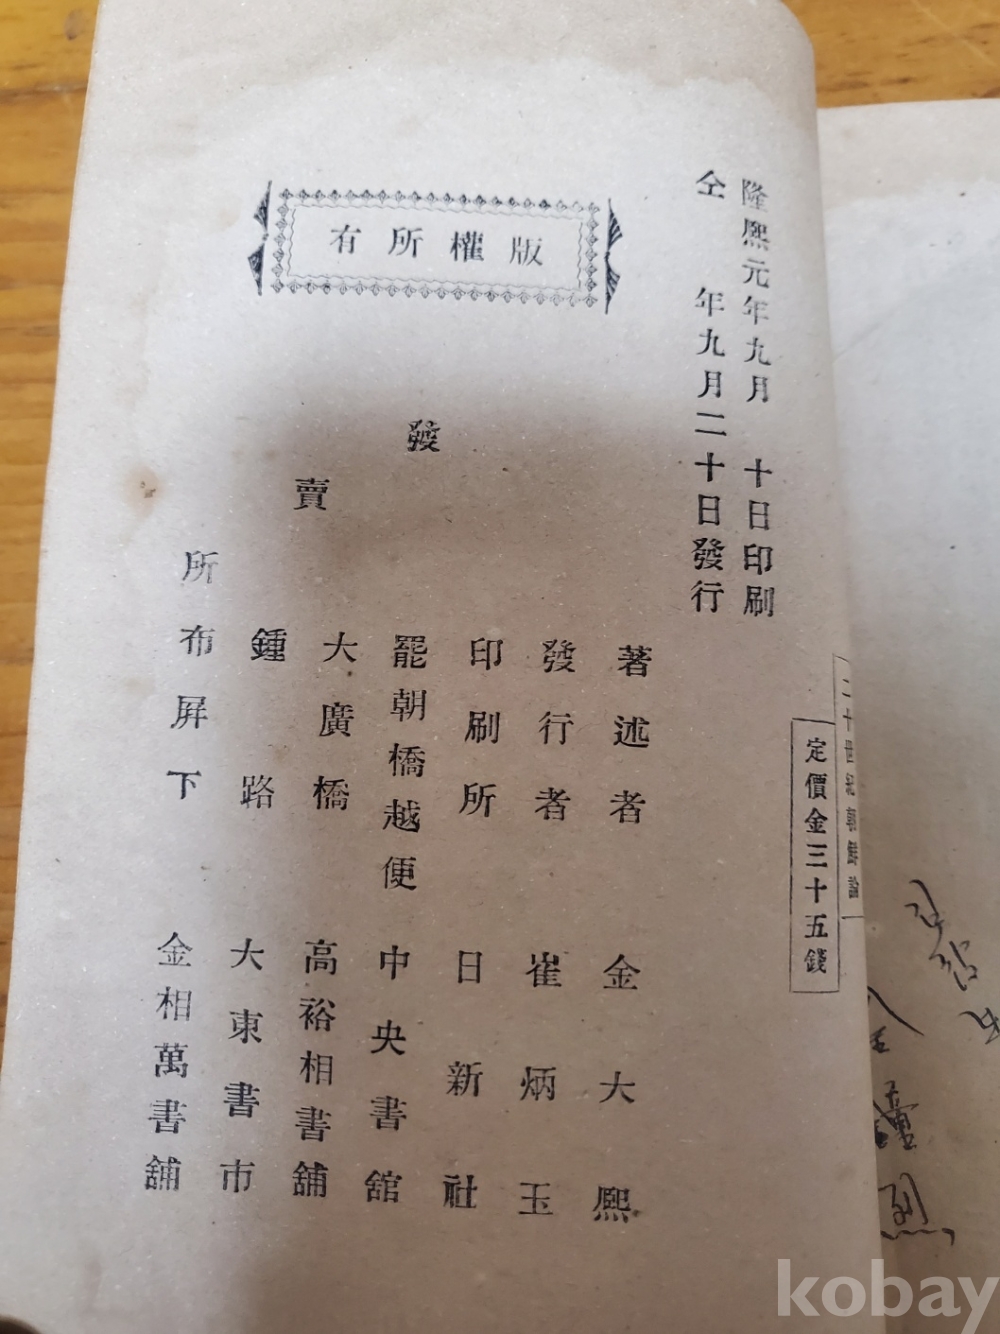 二十世紀朝鮮論
定價金三十五錢
隆熙元年九月 十日印刷
仝 年九月二十日發行
版權所有
著述者 金大熙
發行者 崔炳玉
印刷所 日新社
發賣所
罷朝橋越便 中央書舘
大廣橋 高裕相書舖
鍾路 大東書市
布屛下 金相萬書舖
kobay